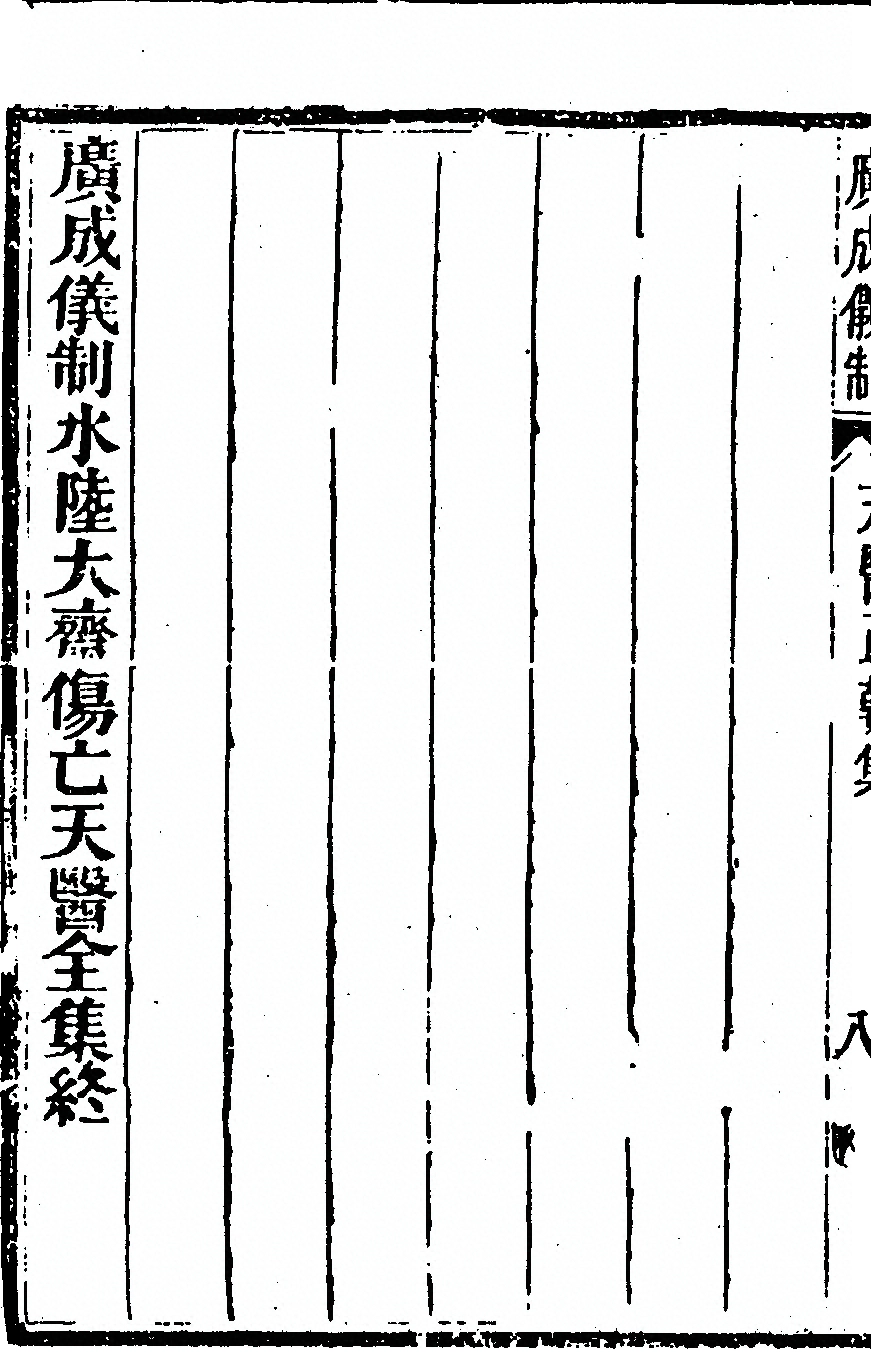 廣成儀制
八
廣成儀制水陸大齋傷亡天醫全集終